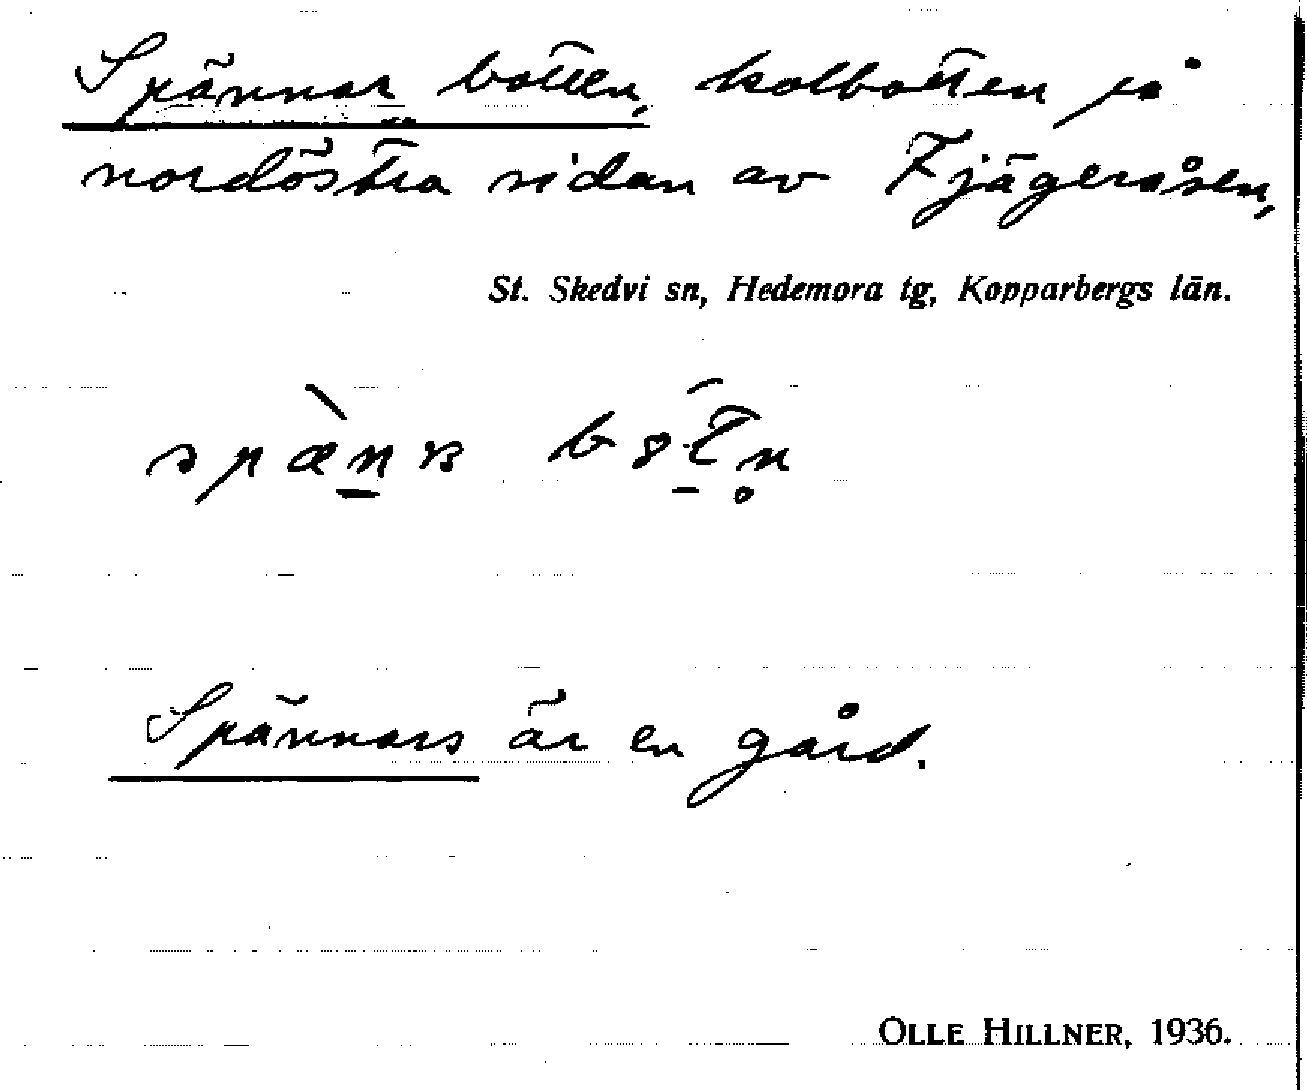 Spännar botten, kolbotten på
nordöstra sidan av Fjägeråsen,
St. Skedvi sn, Hedemora tg, Kopparbergs län.
Spännars är en gård.
OLLE HILLNER, 1936.